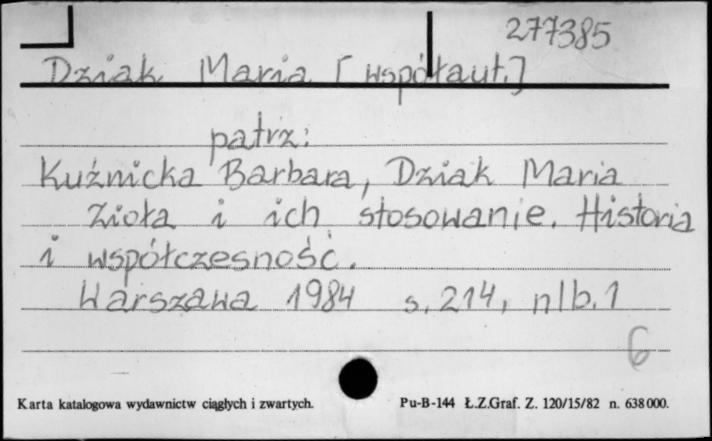 277385
Dziak Maria [współaut.]
patrz:
Kuźnicka Barbara, Dziak Maria
Zioła i ich stosowanie. Historia
i współczesność.
Warszawa 1984 s. 214, nlb. 1
6
Karta katalogowa wydawnictw ciągłych i zwartych. Pu-B-144 Ł.Z.Graf. Z. 120/15/82 n. 638000.